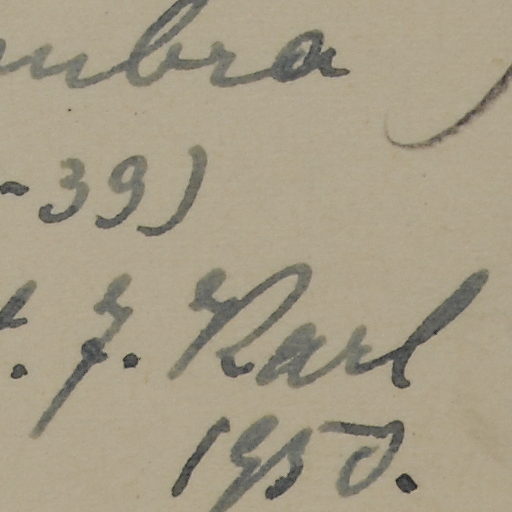 umbra
-39)
t. J. Karl
1950.